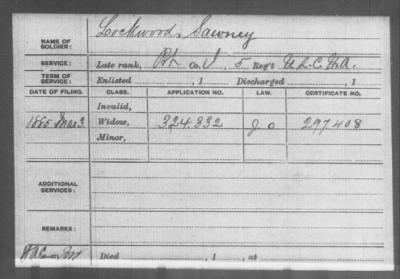 NAME OF SOLDIER: Lockwood, Sawney
SERVICE: Late rank, Pvt Co. I, 5 Reg't U.S.C.H.A.
TERM OF SERVICE: Enlisted , 1 Discharged , 1
DATE OF FILING. CLASS. APPLICATION NO. LAW. CERTIFICATE NO.
Invalid,
1885 Mar 3 Widow, 324.332 297.408
Minor,
ADDITIONAL SERVICES:
REMARKS:
Died , 1 , at